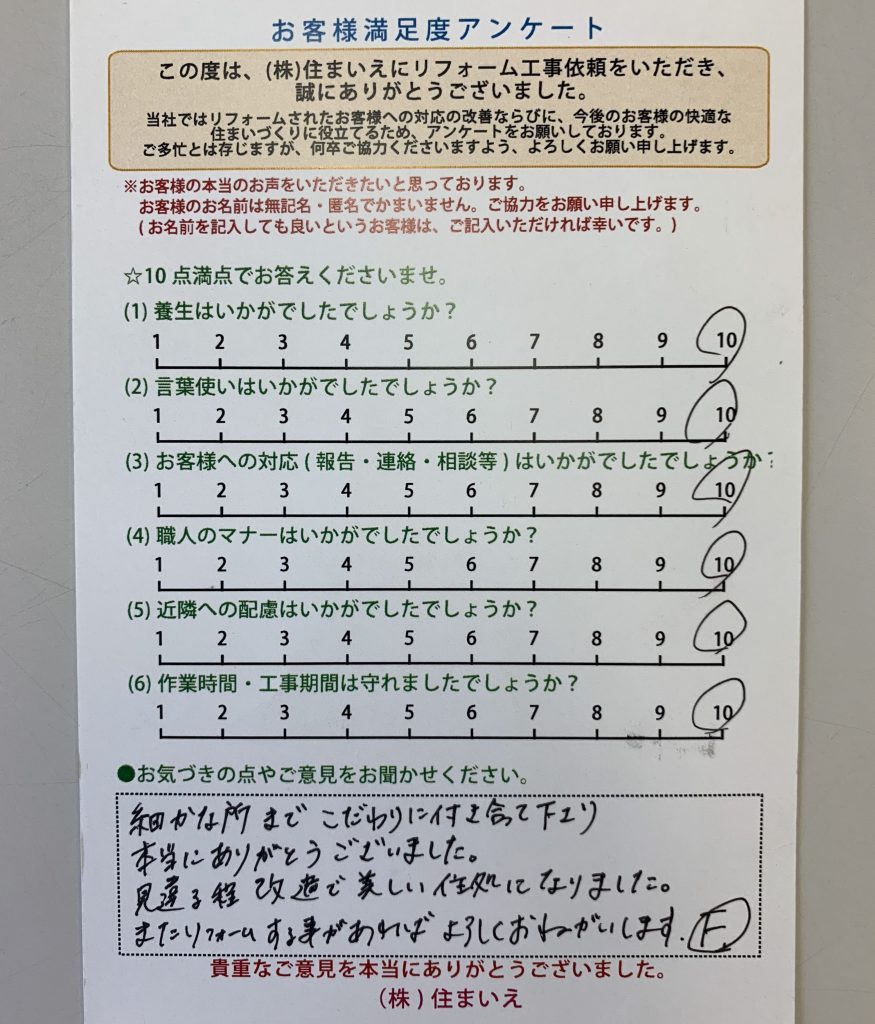 お客様満足度アンケート
この度は、(株)住まいえにリフォーム工事依頼をいただき、
誠にありがとうございました。
当社ではリフォームされたお客様への対応の改善ならびに、今後のお客様の快適な
住まいづくりに役立てるため、アンケートをお願いしております。
ご多忙とは存じますが、何卒ご協力くださいますよう、よろしくお願い申し上げます。
※お客様の本当のお声をいただきたいと思っております。
お客様のお名前は無記名・匿名でかまいません。ご協力をお願い申し上げます。
(お名前を記入しても良いというお客様は、ご記入いただければ幸いです。)
☆10点満点でお答えくださいませ。
(1) 養生はいかがでしたでしょうか？
1 2 3 4 5 6 7 8 9 10
(2) 言葉使いはいかがでしたでしょうか？
1 2 3 4 5 6 7 8 9 10
(3) お客様への対応(報告・連絡・相談等)はいかがでしたでしょうか？
1 2 3 4 5 6 7 8 9 10
(4) 職人のマナーはいかがでしたでしょうか？
1 2 3 4 5 6 7 8 9 10
(5) 近隣への配慮はいかがでしたでしょうか？
1 2 3 4 5 6 7 8 9 10
(6) 作業時間・工事期間は守れましたでしょうか？
1 2 3 4 5 6 7 8 9 10
●お気づきの点やご意見をお聞かせください。
細かな所まで こだわりに付き合って下さり
本当にありがとうございました。
見違る程 改造で美しい住処になりました。
またリフォームする事があればよろしくおねがいします. F.
貴重なご意見を本当にありがとうございました。
(株)住まいえ